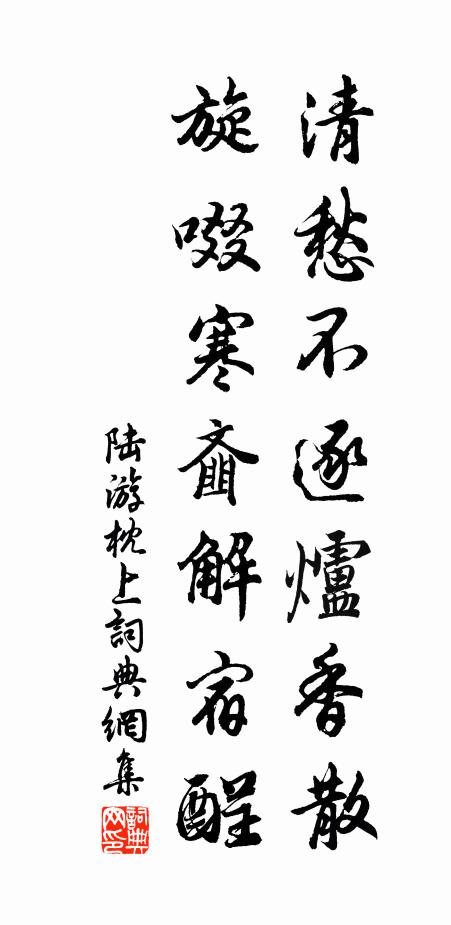 清愁不逐爐香散
旋啜寒齑解宿酲
陸游枕上詞典網集
詞典網印